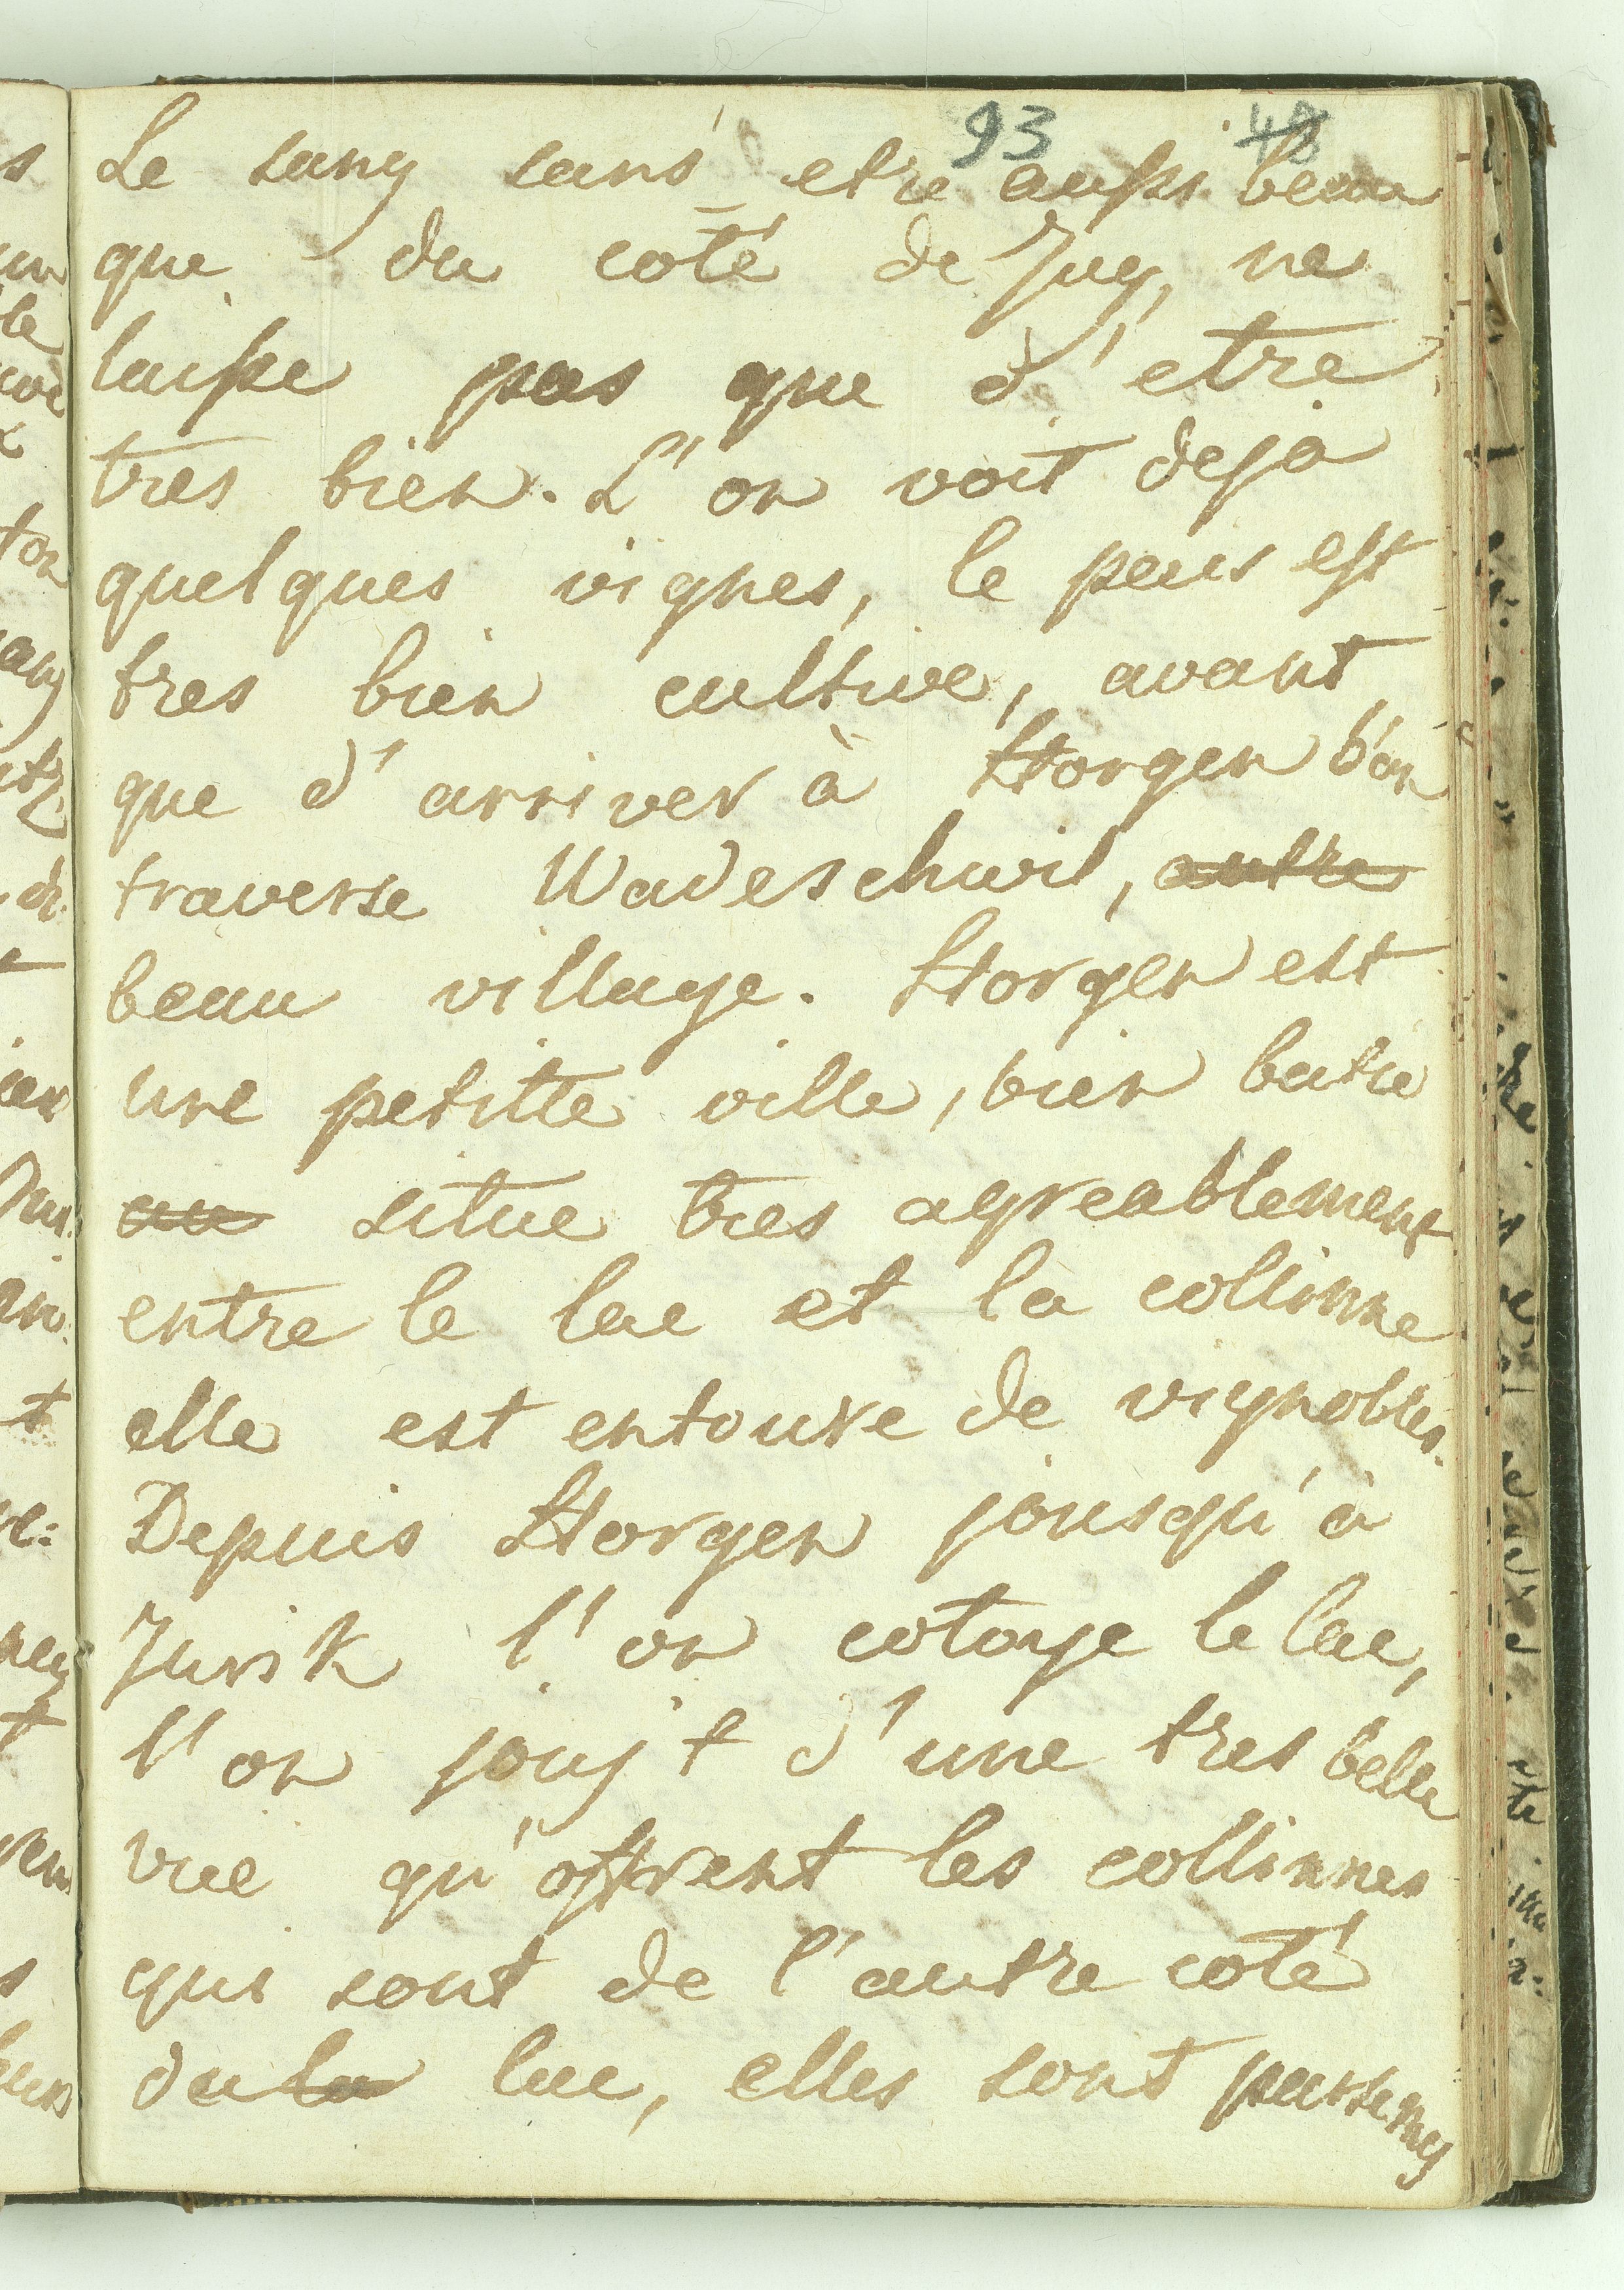 93 48
Le sang sans etre aussi beau
que du coté de Zug, ne
laisse pas que d'etre
tres bien. L'on voit deja
quelques vignes, le pais est
tres bien cultive, avant
que d'arriver à Horgen l'on
traverse Wadeschwil, autre
beau village. Horgen est
une petitte ville, bien batie
au situe tres agreablement
entre le lac et la collinne
elle est entoure de vignobles.
Depuis Horgen jousqu'à
Zurik l'on cotoye le lac,
l'on jouјt d'une tres belle
vue qu'offrent les collinnes
qui sont de l'autre coté
du la lac, elles sont parsemes